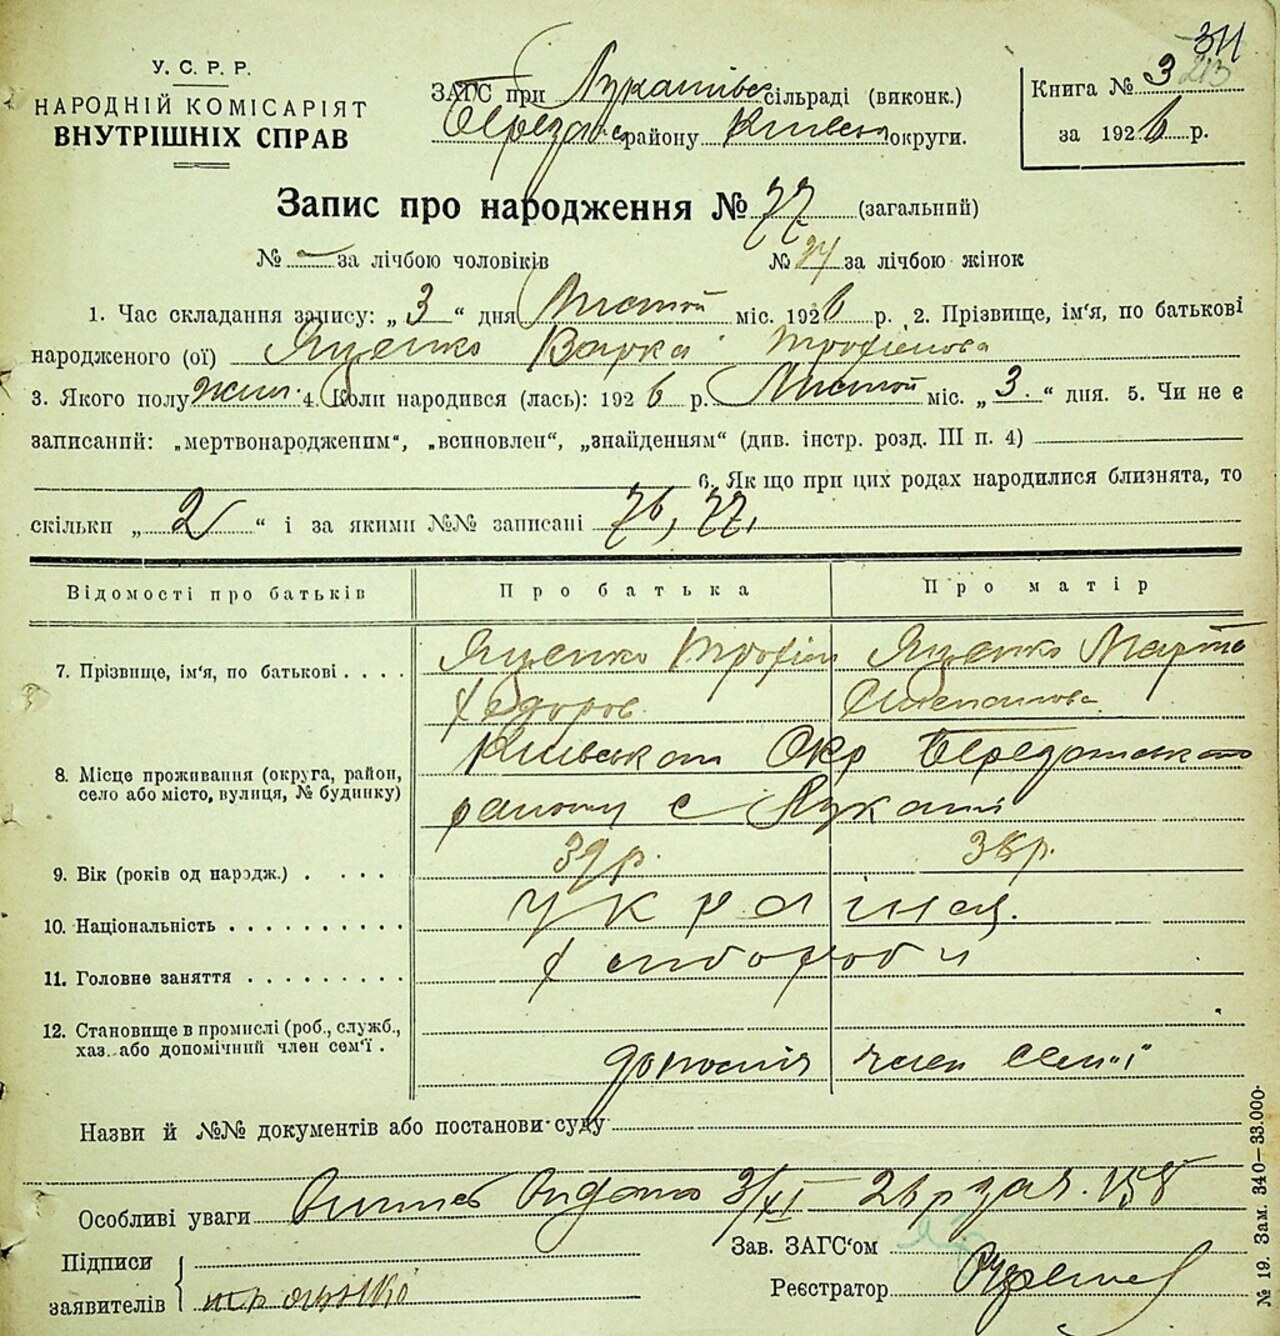 311
213
У. С. Р. Р.
НАРОДНІЙ КОМІСАРІЯТ
ВНУТРІШНІХ СПРАВ
ЗАГС при Лукашівськ сільраді (виконк.)
Березанс району Київськ округи.
Книга № 3
за 1926 р.
Запис про народження № 77 (загальний)
№ — за лічбою чоловіків № 34 за лічбою жінок
1. Час складання запису: „ 3 “ дня Листоп міс. 1926 р. 2. Прізвище, ім'я, по батькові
народженого (ої) Яценко Варка Трофімова
3. Якого полу жін. 4. Коли народився (лась): 1926 р. Листоп міс. „ 3. “ дня. 5. Чи не є
записаний: „мертвонародженим“, „всиновлен“, „знайденням“ (див. інстр. розд. III п. 4)
6. Як що при цих родах народилися близнята, то
скільки „ 2 “ і за якими №№ записані 76, 77,
Відомості про батьків Про батька Про матір
7. Прізвище, ім'я, по батькові . . . . Яценко Трофім Яценко Марта
Федоров Степанова
8. Місце проживання (округа, район, Київськой Окр Березанського
село або місто, вулиця, № будинку) району с Лукаші
9. Вік (років од народж.) . . . . 39 р. 38 р.
10. Національність . . . . . . . . . . українця.
11. Головне заняття . . . . . . . . . хліборобі
12. Становище в промислі (роб., служб.,
хаз. або допомічний член сем'ї . допоміч член семї
Назви й №№ документів або постанови суду
Особливі уваги Витяг видано 3/XI 26 р за № 158
Підписи
заявителів
Зав. ЗАГС'ом
Реєстратор
№ 19. Зам. 340—33.000.